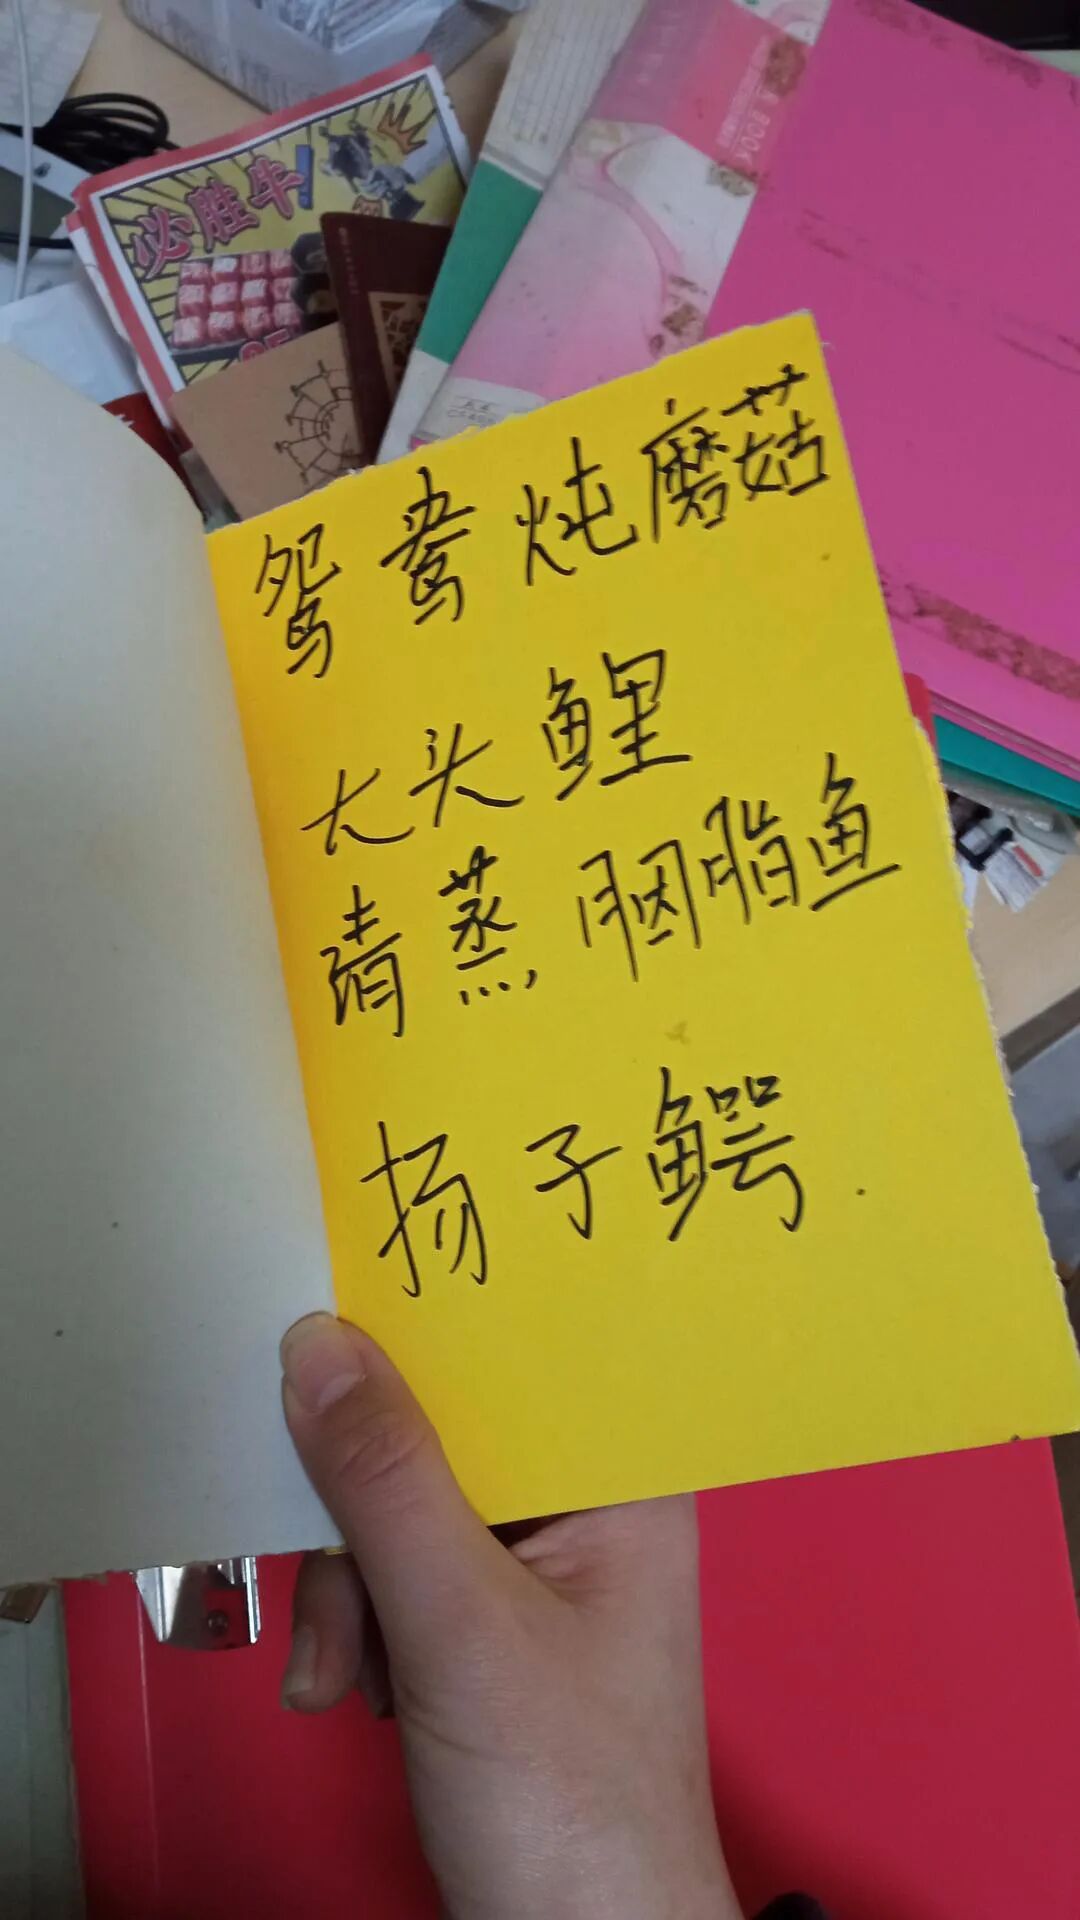 必胜牛!
鸳鸯炖磨菇
大头鲤
清蒸胭脂鱼
扬子鳄